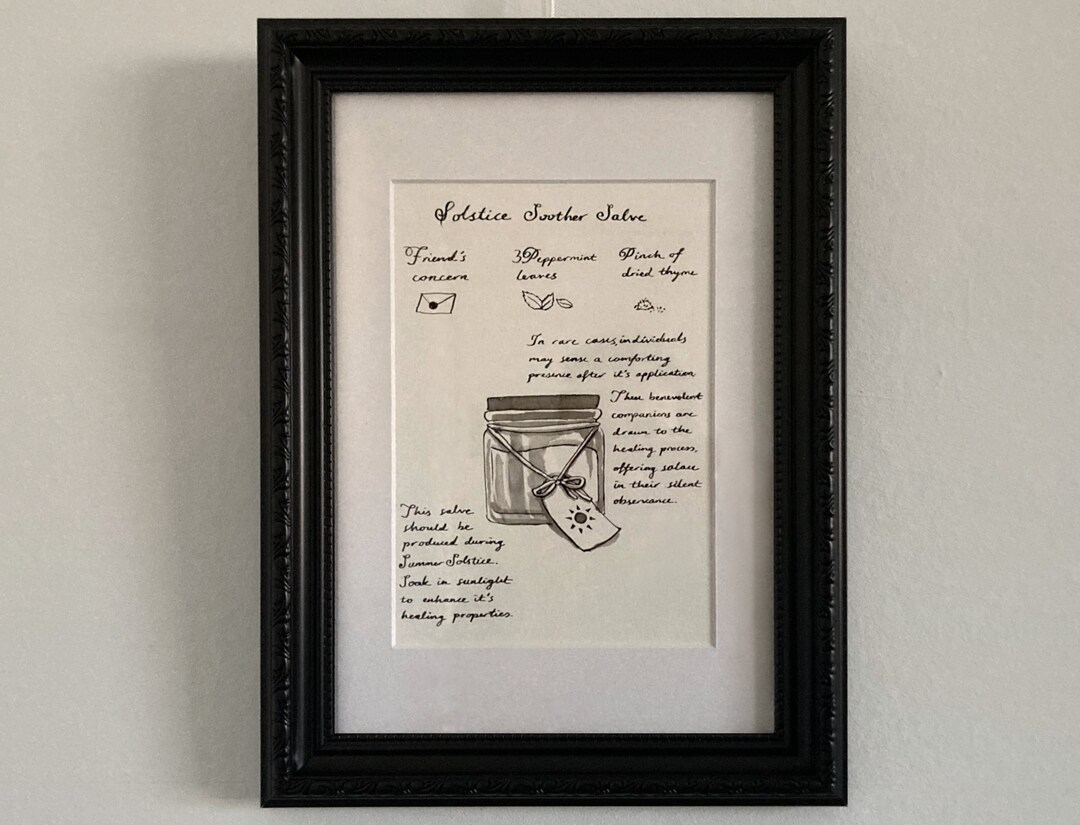 Solstice Soother Salve
Friend's
concern
3 Peppermint
leaves
Pinch of
dried thyme
In rare cases, individuals
may sense a comforting
presence after it's application
These benevolent
companions are
drawn to the
healing process,
offering solace
in their silent
observance.
This salve
should be
produced during
Summer Solstice.
Soak in sunlight
to enhance it's
healing properties.